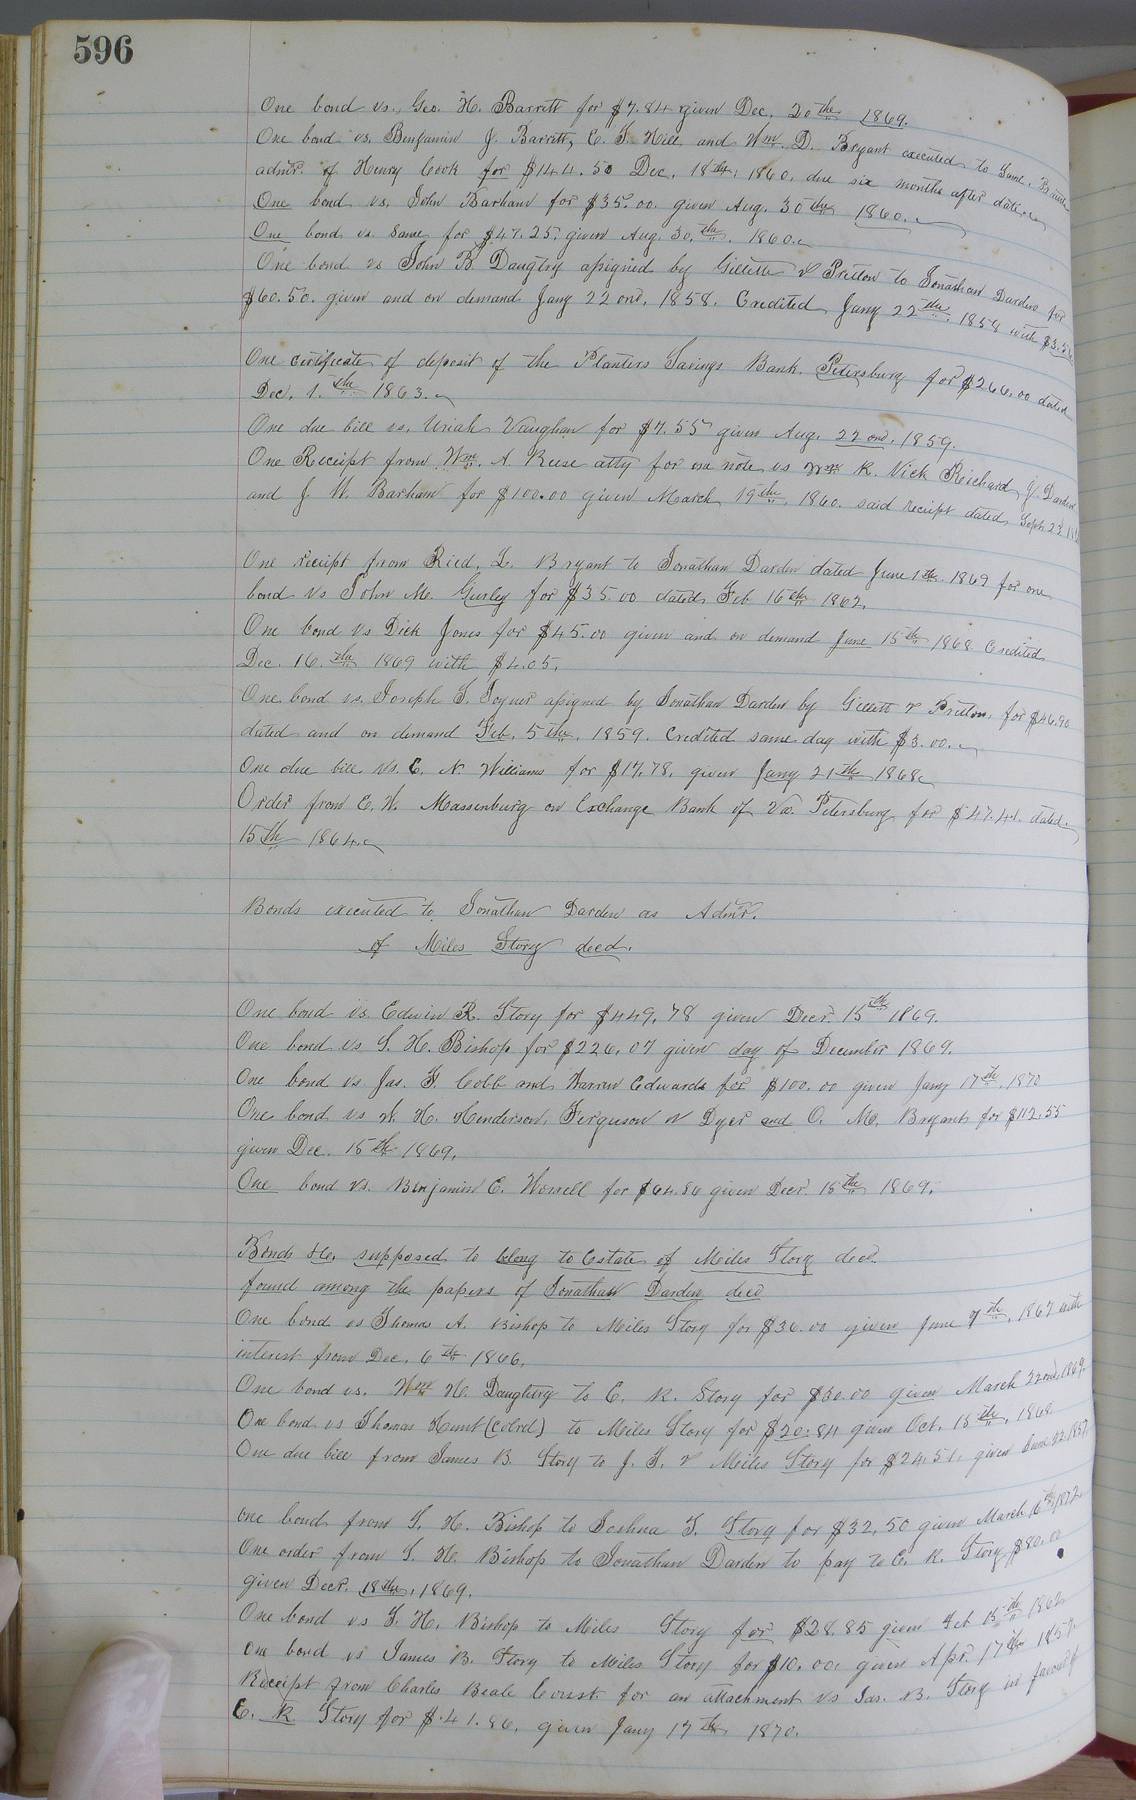 596
One bond vs. Geo. H. Barrett for $7.84 given Dec. 20th 1869.
One bond vs. Benjamin J. Barrett, E. T. Hill and Wm. D. Bryant executed to
admr. of Henry Cook for $144.50 Dec. 18th, 1860. due six months after date
One bond vs. John Barham for $35.00 given Aug. 30th 1860.
One bond vs. Same for $47.25 given Aug. 30th. 1860.
One bond vs John B Daugtry assigned by Gillette & Pretlow to Jonathan Darden for
$60.50. given and on demand Jany 22ond, 1858. Credited Jany 22th. 1858 with
One certificate of deposit of the Planters Savings Bank. Petersburg for $266.00 dated
Dec, 1.th 1863.
One due bill vs. Uriah Vaughan for $7.55 given Aug. 22ond. 1859.
One Receipt from Wm. A Reese atty for one note vs Wm R. Vick Reichard J. Darden
and J. W. Barham for $100.00 given March 19th, 1860. said receipt dated Sept 23
One receipt from Ried. L. Bryant to Jonathan Darden dated June 1th. 1869 for one
bond vs John M. Gurley for $35.00 dated Feb 16th 1862.
One bond vs Dick Jones for $45.00 given and on demand June 15th 1868 Credited
Dec. 16.th 1869 with $4.05.
One bond vs. Joseph T. Joyner assigned by Jonathan Darden by Gillett & Pretlow, for $46.90
dated and on demand Feb. 5th. 1859. Credited same day with $3.00.
One due bill vs. E. N. Williams for $17.78. given Jany 21th 1868
Order from E. W. Massenburg on Exchange Bank of Va. Petersburg for $47.41. dated
15th 1864.
Bonds executed to Jonathan Darden as Admr.
of Miles Story decd.
One bond vs. Edwin R. Story for $449,78 given Decr. 15th 1869.
One bond vs S. H. Bishop for $226.07 given day of December 1869.
One bond vs Jas. F. Cobb and Warren Edwards for $100.00 given Jany 17th, 1870
One bond vs W. H. Henderson, Ferguson & Dyer and O. M. Bryant for $112.55
given Dec. 15th 1869.
One bond vs. Benjamin E. Howell for $64.86 given Decr. 15th 1869.
Bonds &c. supposed to belong to Estate of Miles Story decd.
found among the papers of Jonathan Darden decd
One bond vs Thomas A. Bishop to Miles Story for $36.00 given June 7th, 1867 with
interest from Dec. 6th 1866.
One bond vs. Wm H. Daughtry to E. R. Story for $30.00 given March 22ond, 1869.
One bond vs Thomas Hunt (Colrd) to Miles Story for $20.84 given Oct. 15th, 1868
One due bill from James B. Story to J. T. & Miles Story for $24.51. given June 22 1857
one bond from S. H. Bishop to Joshua T. Story for $32.50 given March 16th 1872
One order from S. H. Bishop to Jonathan Darden to pay to E. R. Story $80.00
given Decr. 18th, 1869.
One bond vs S. H. Bishop to Miles Story for $28.85 given Feb 15th 1862
one bond vs James B. Story to Miles Story for $10.00. given Apr. 17th 1857
Receipt from Charles Beale Const. for an attachment vs Jas. B. Story in favour of
E. R Story for $41.86. given Jany 17th 1870.